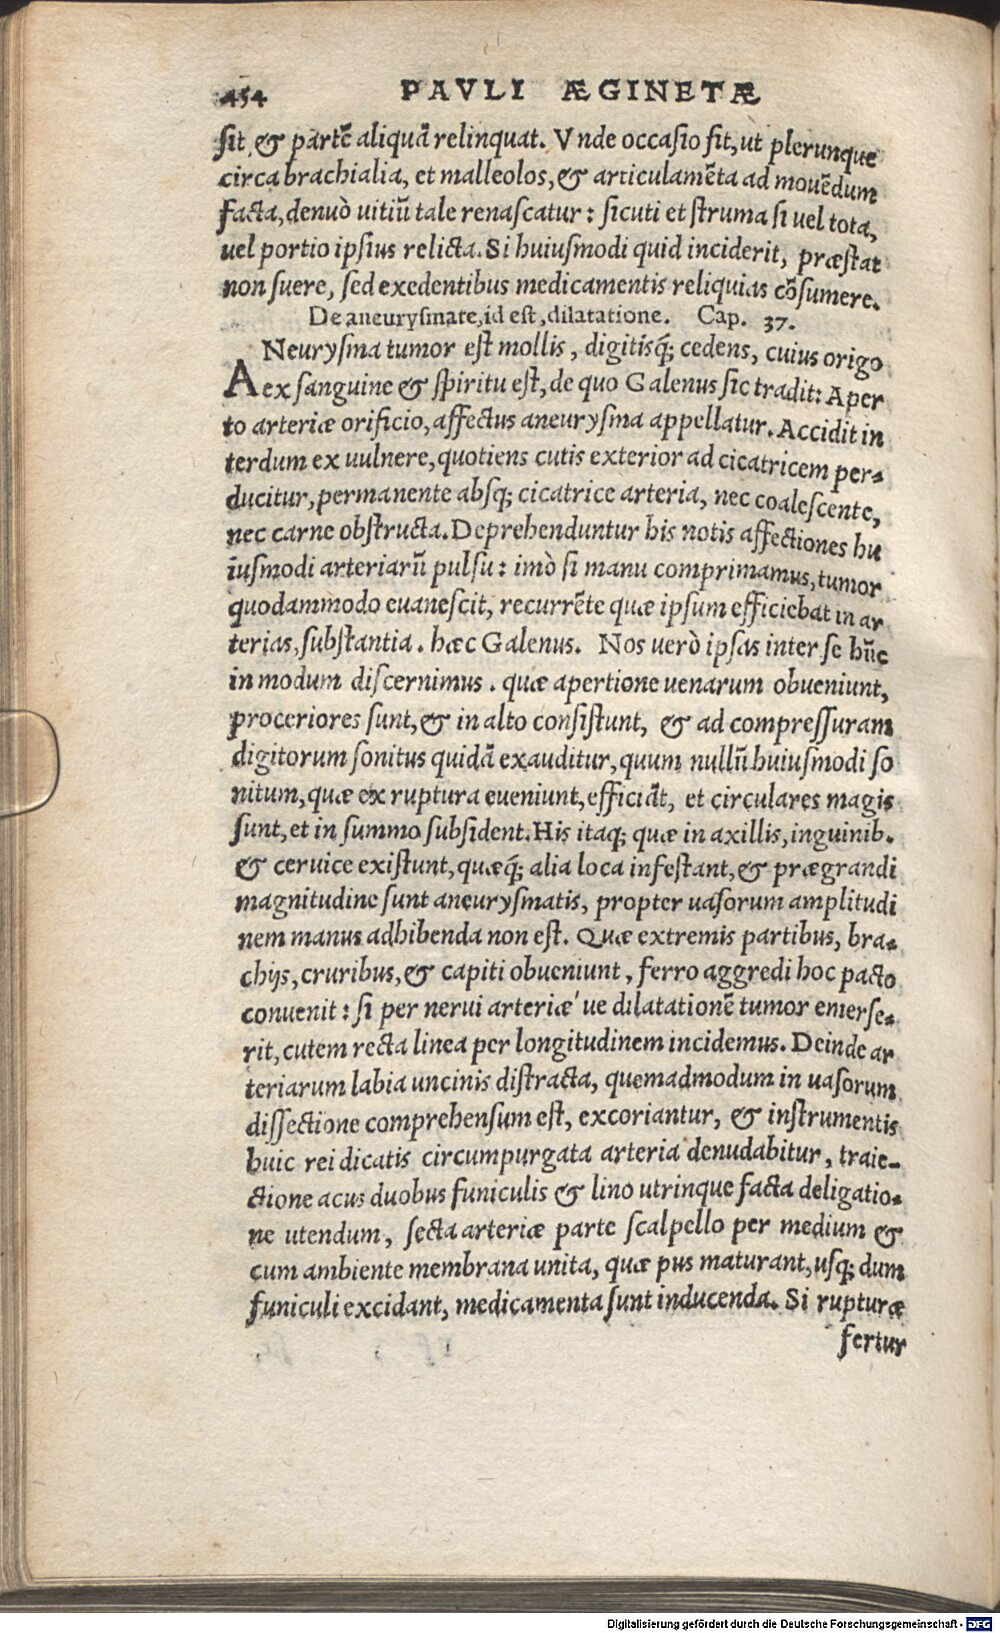 454 PAVLI ÆGINETÆ
sit, & partẽ aliquã relinquat. Vnde occasio fit, ut plerunque
circa brachialia, et malleolos, & articulamẽta ad mouẽdum
facta, denuò uitiũ tale renascatur: sicuti et struma si uel tota,
uel portio ipsius relicta. Si huiusmodi quid inciderit, præstat
non suere, sed exedentibus medicamentis reliquias cõsumere.
De aneurysmate, id est, dilatatione. Cap. 37.
ANeurysma tumor est mollis, digitisq́; cedens, cuius origo
ex sanguine & spiritu est, de quo Galenus sic tradit: Aper
to arteriæ orificio, affectus aneurysma appellatur. Accidit in
terdum ex uulnere, quotiens cutis exterior ad cicatricem per-
ducitur, permanente absq; cicatrice arteria, nec coalescente,
nec carne obstructa. Deprehenduntur his notis affectiones hu
iusmodi arteriarũ pulsu: imò si manu comprimamus, tumor
quodammodo euanescit, recurrẽte quæ ipsum efficiebat in ar
terias, substantia. hæc Galenus. Nos uerò ipsas inter se hũc
in modum discernimus. quæ apertione uenarum obueniunt,
proceriores sunt, & in alto consistunt, & ad compressuram
digitorum sonitus quidã exauditur, quum nullũ huiusmodi so
nitum, quæ ex ruptura eueniunt, efficiãt, et circulares magis
sunt, et in summo subsident. His itaq; quæ in axillis, inguinib.
& ceruice existunt, quæq́; alia loca infestant, & prægrandi
magnitudine sunt aneurysmatis, propter uasorum amplitudi
nem manus adhibenda non est. Quæ extremis partibus, bra-
chijs, cruribus, & capiti obueniunt, ferro aggredi hoc pacto
conuenit: si per nerui arteriæ' ue dilatationẽ tumor emerse-
rit, cutem recta linea per longitudinem incidemus. Deinde ar
teriarum labia uncinis distracta, quemadmodum in uasorum
dissectione comprehensum est, excoriantur, & instrumentis
huic rei dicatis circumpurgata arteria denudabitur, traie-
ctione acus duobus funiculis & lino utrinque facta deligatio-
ne utendum, secta arteriæ parte scalpello per medium &
cum ambiente membrana unita, quæ pus maturant, usq; dum
funiculi excidant, medicamenta sunt inducenda. Si rupturæ
fertur
Digitalisierung gefördert durch die Deutsche Forschungsgemeinschaft - DFG